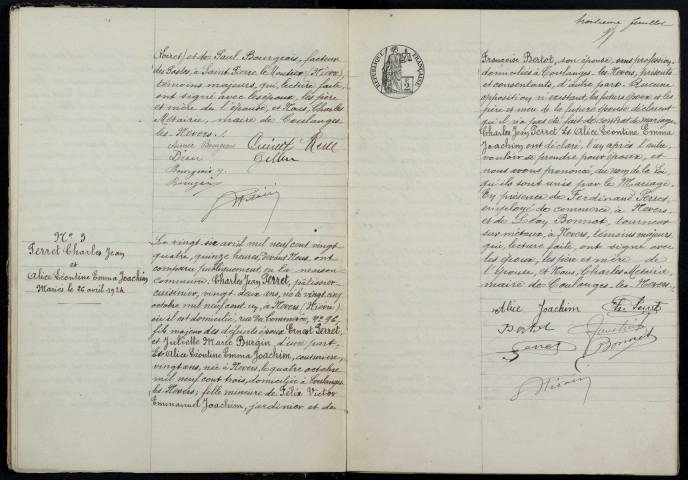 (Loiret) et de Paul Bourgeois, facteur
des Postes, à Saint Pierre le Moutier (Nièvre),
témoins majeurs, qui, lecture faite,
ont signé avec les époux, les père
et mère de l'épouse, et Nous, Charles
Métairie, maire de Coulanges
les-Nevers./.
Bourgeois
N° 3
Perret Charles Jean
et
Alice Léontine Emma Joachim
Mariés le 26 avril 1924
Le vingt six avril mil neuf cent vingt
quatre, quinze heures, devant Nous, ont
comparu publiquement en la maison
commune: Charles Jean Perret, pâtissier-
cuisinier, vingt deux ans, né le vingt
octobre mil neuf cent un, à Nevers (Nièvre)
où il est domicilié, rue du Commerce, n° 96,
fils majeur des défunts époux Ernest Perret,
et Juliette Marie Burgin d'une part,
Et Alice Léontine Emma Joachim, couturière,
vingt ans, née à Nevers, le quatre octobre
mil neuf cent trois, domiciliée à Coulanges
les-Nevers; fille mineure de Félix Victor
Emmanuel Joachim, jardinier et de
troisième feuillet
RÉPUBLIQUE FRANÇAISE
Françoise Bertot, son épouse, sans profession,
domiciliés à Coulanges-les-Nevers, présents
et consentants, d'autre part. Aucune
opposition n'existant, les futurs époux et les
père et mère de la future épouse déclarent
qu'il n'a pas été fait de contrat de mariage.
Charles Jean Perret Et Alice Léontine Emma
Joachim ont déclaré l'un après l'autre
vouloir se prendre pour époux, et
nous avons prononcé au nom de la Loi,
qu'ils sont unis par le Mariage.
En présence de Ferdinand
employé de commerce, à Nevers,
et de Bonnot, tourneur
sur métaux, à Nevers, témoins majeurs
qui, lecture faite, ont signé avec
les époux, les père et mère de
l'épouse, et Nous, Charles Métairie,
maire de Coulanges-les-Nevers.
Alice Joachim
Perret
Bonnot